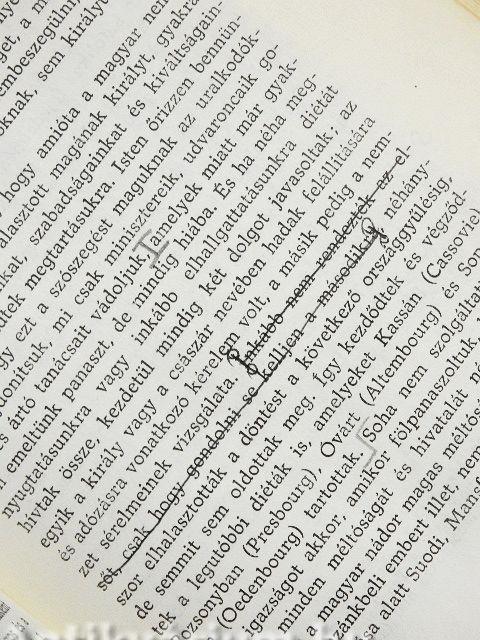 get, a m
embeszegülni
oknak, sem királyo
hogy amióta a magyar nem
alasztott magának királyt, gyakra
kat, szabadságainkat és kiváltságain-
ttek megtartásukra. Isten őrizzen bennün-
gy ezt a szószegést maguknak az uralkodók-
onítsuk, mi csak minisztereik, udvaroncaik go-
s ártó tanácsait vádoljuk, amelyek miatt már gyak-
n emeltünk panaszt, de mindig hiába. És ha néha meg-
nyugtatásunkra vagy inkább elhallgattatásunkra diétát
hívtak össze, kezdetül mindig két dolgot javasoltak; az
egyik a király vagy a császár nevében hadak felállítására
és adózásra vonatkozó kérelem volt, a másik pedig a nem-
zet sérelmeinek vizsgálata. Inkább nem rendezték az el-
sőt, csak hogy gondolni se kelljen a másodikra, néhány-
szor elhalasztották a döntést a következő országgyűlésig,
de semmit sem oldottak meg. Így kezdődtek és végződ-
tek a legutóbbi diéták is, amelyeket Kassán (Cassovie
ozsonyban (Presbourg), Óvárt (Altembourg) és Sop
(Oedenbourg) tartottak. Soha nem szolgáltat
igazságot akkor, amikor fölpanaszoltuk, h
minden méltóságát és hivatalát né
magyar nádor magas méltós
ánkbeli embert illet, nem
a alatt Suodi, Mansf